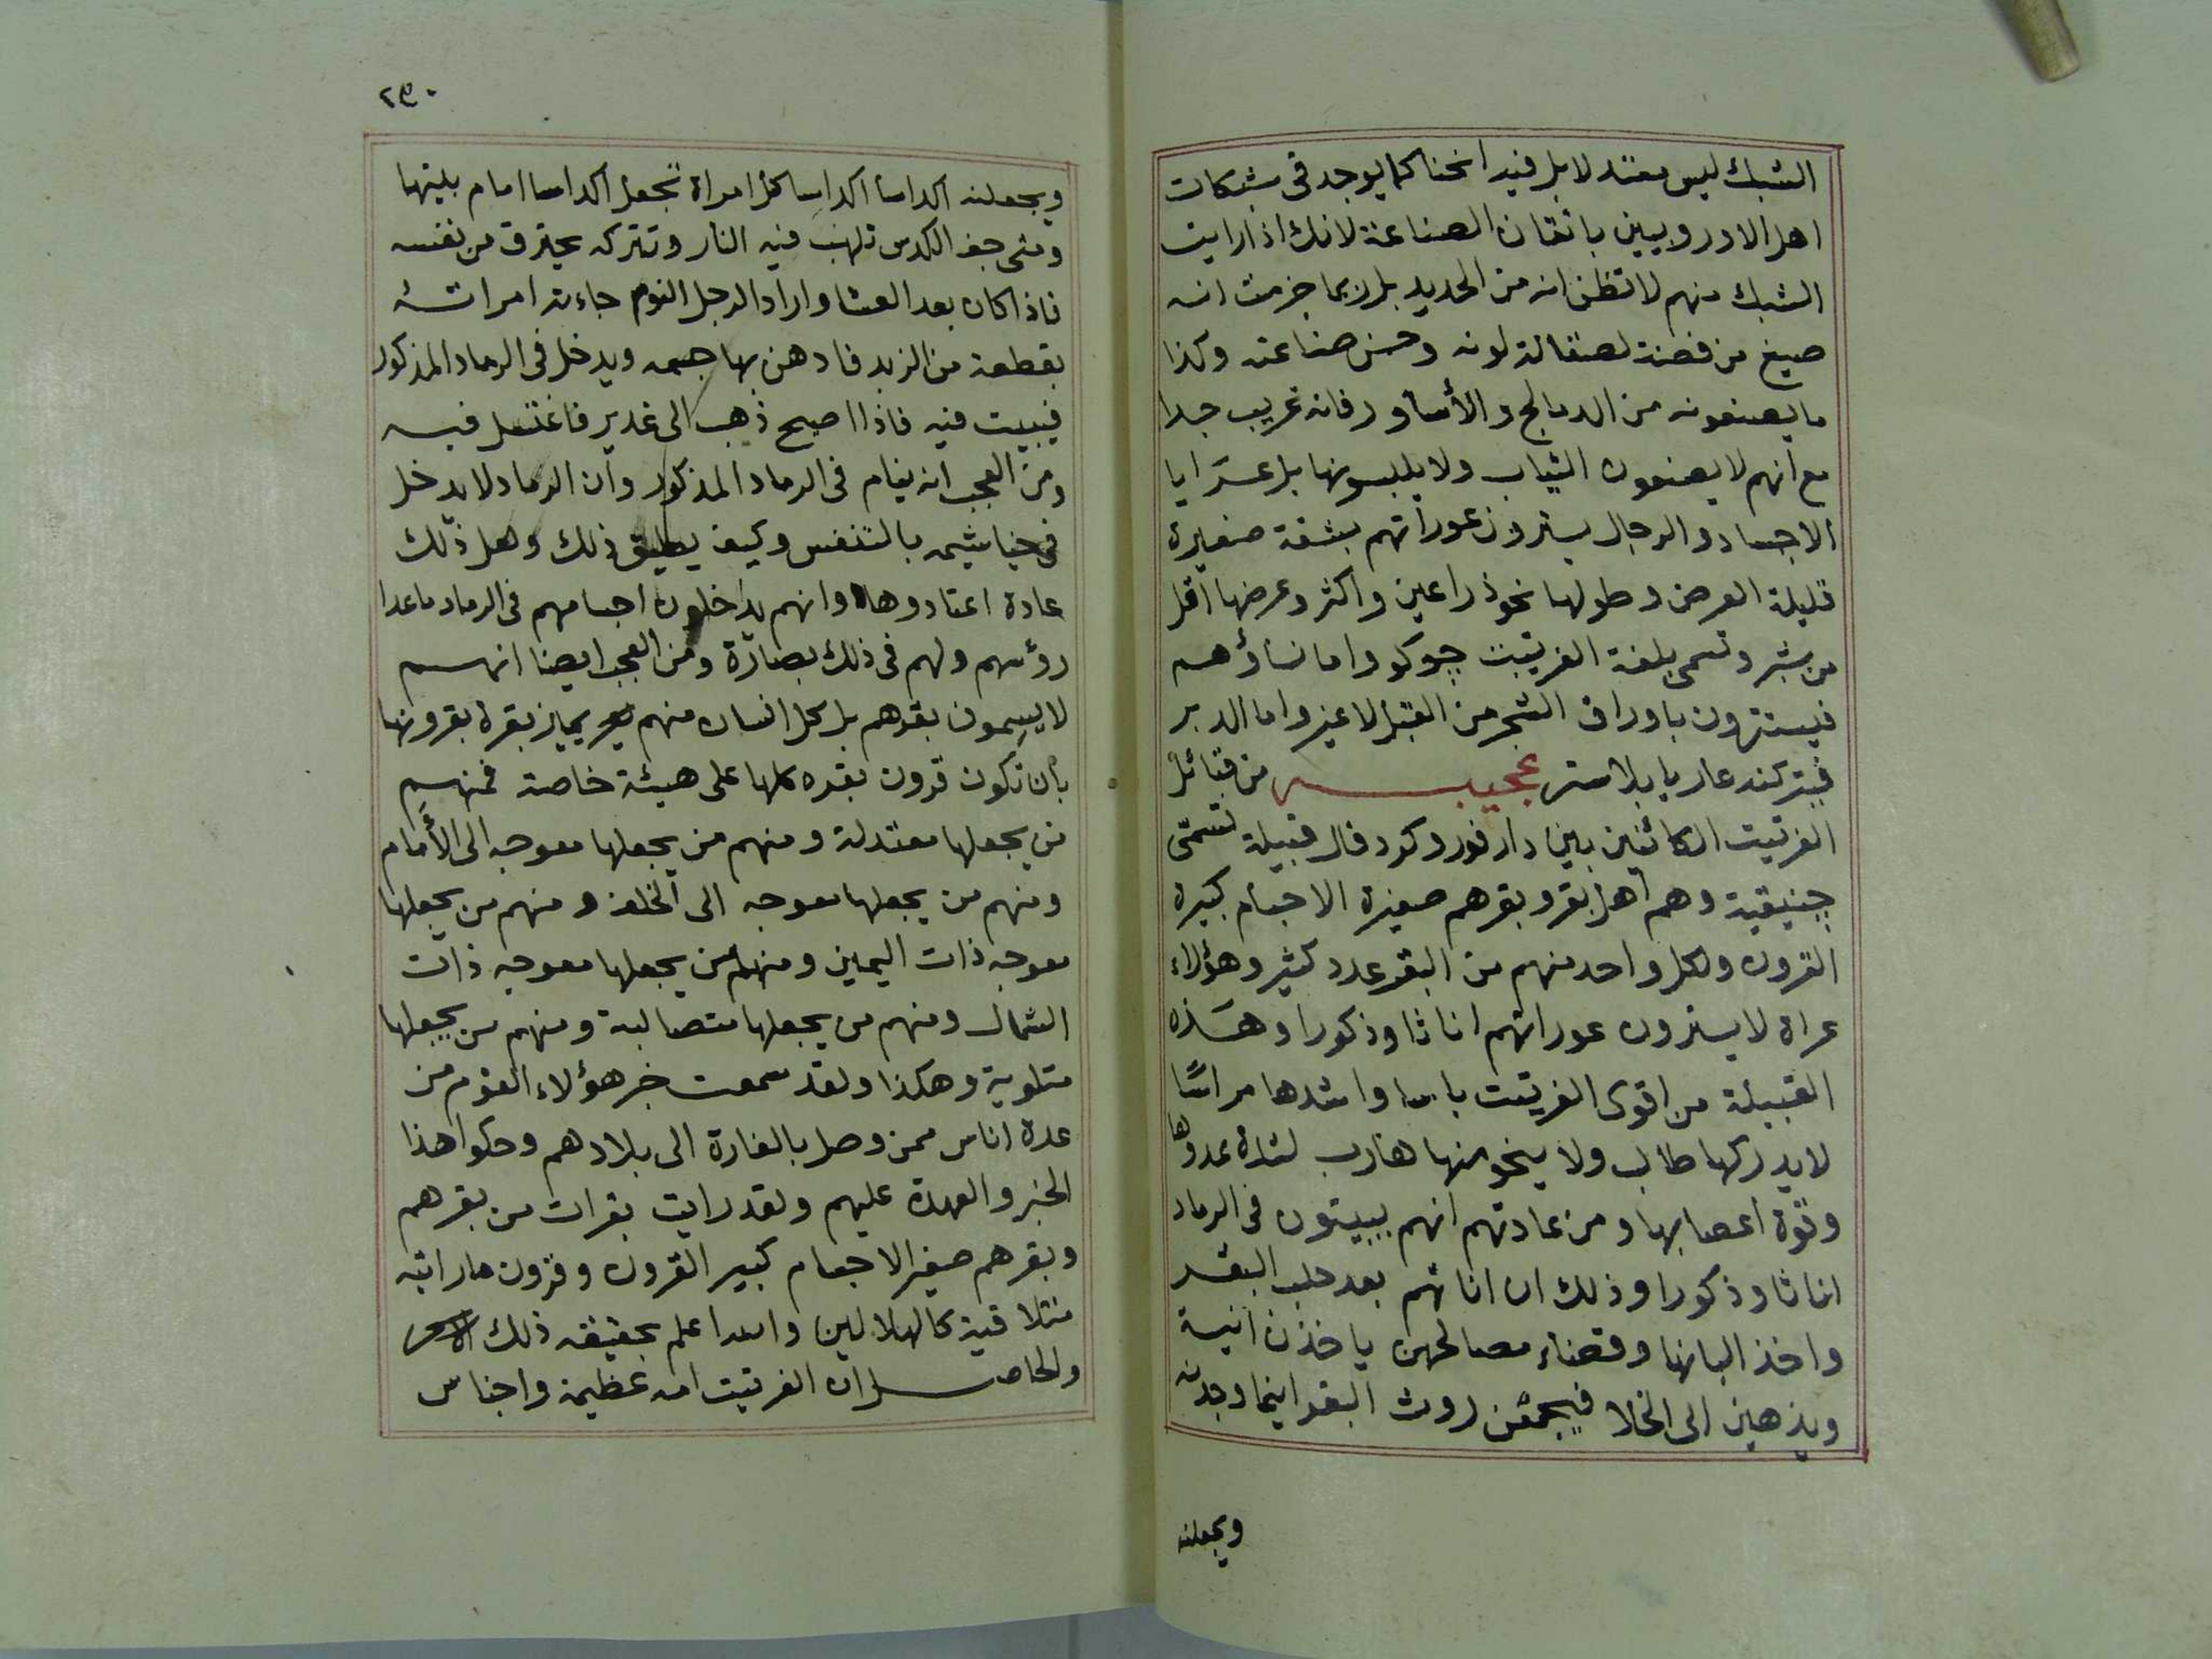 الشبك ليس معتدلا بل فيه انحنا كما يوجد فى شبكات
اهل الاوروبيين باتقان الصناعة لانك اذا رايت
الشبك منهم لا تظن انه من الحديد بل ربما جزمت انه
صيغ من فضة لصقالة لونه وحسن صناعته وكذا
ما يصنعونه من الدمالج والأساور فانه غريب جدا
مع انهم لا يصنعون الثياب ولا يلبسونها بل عرايا
الاجساد والرجال يسترون عوراتهم بشقة صغيرة
قليلة العرض وطولها نحو ذراعين واكثر وعرضها اقل
من شبر وتسمى بلغة الفرتيت چوكو واما نساؤهم
فيستترون باوراق الشجر من القبل لا غير واما الدبر
فيتركنه عاريا بلا ستر عجيبــــه من قبائل
الفرتيت الكائنين بين دارفور وكردفال قبيلة تسمّى
جينيقية وهم اهل بقر وبقرهم صغيرة الاجسام كبيرة
القرون ولكل واحد منهم من البقر عدد كثير وهؤلاء
عراة لا يسترون عوراتهم اناثا وذكورا وهذه
القبيلة من اقوى الفرتيت باسا واشدها مراسًا
لا يدركها طالب ولا ينجو منها هارب لشدة عدوها
وقوة اعصابها ومن عادتهم انهم يبيتون فى الرماد
اناثا وذكورا وذلك ان اناثهم بعد حلب البقر
واخذ البانها وقضاء مصالحهن ياخذن انية
ويذهبن الى الخلا فيجمعن روث البقر اينما وجدنه
ويجعلنه
٢٩٠
ويجعلنه اكداسا اكداسا كل امراة تجعل اكداسا امام بليتها
ومتى جف الكدس تلهب فيه النار وتتركه يحترق من نفسه
فاذا كان بعد العشا واراد الرجل النوم جاءته امراته
بقطعة من الزبد فادهن بها جسمه ويدخل فى الرماد المذكور
فيبيت فيه فاذا اصبح ذهب الى غدير فاغتسل فيه
ومن العجب انه ينام فى الرماد المذكور وان الرماد لا يدخل
فى خياشيمه بالتنفس وكيف يطيق ذلك وهل ذلك
عادة اعتادوها وانهم يداخلون اجسامهم فى الرماد ماعدا
رؤسهم ولهم فى ذلك بصارة ومن العجب ايضا انهم
لا يسِمون بقرهم بل كل انسان منهم يميز بقره بقرونها
بأن تكون قرون بقره كلها على هيئة خاصة فمنهم
من يجعلها معتدلة ومنهم من يجعلها معوجه الى الأَمام
ومنهم من يجعلها معوجه الى الخلف ومنهم من يجعلها
معوجه ذات اليمين ومنهم من يجعلها معوجه ذات
الشمال ومنهم من يجعلها متصالبة ومنهم من يجعلها
متلوية وهكذا ولقد سمعت خبر هؤلاء القوم من
عدة اناس ممن وصل بالغارة الى بلادهم وحكوا هذا
الخبر والعهدة عليهم ولقد رايت بقرات من بقرهم
وبقرهم صغير الاجسام كبير القرون وقرون ما رايته
متلاقية كالهلالين والله اعلم بحقيقه ذلك الامر
والحاصــل ان الفرتيت امه عظيمة واجناس